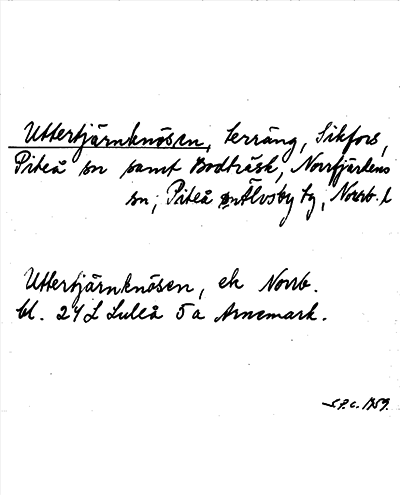 Uttertjärnknösen, terräng, Sikfors,
Piteå sn samt Bodträsk, Norrfjärdens
sn, Piteå o Älvsby tg, Norrb. l
Uttertjärnknösen, ek Norrb.
bl. 24 L Luleå 5a Arnemark.
1959.